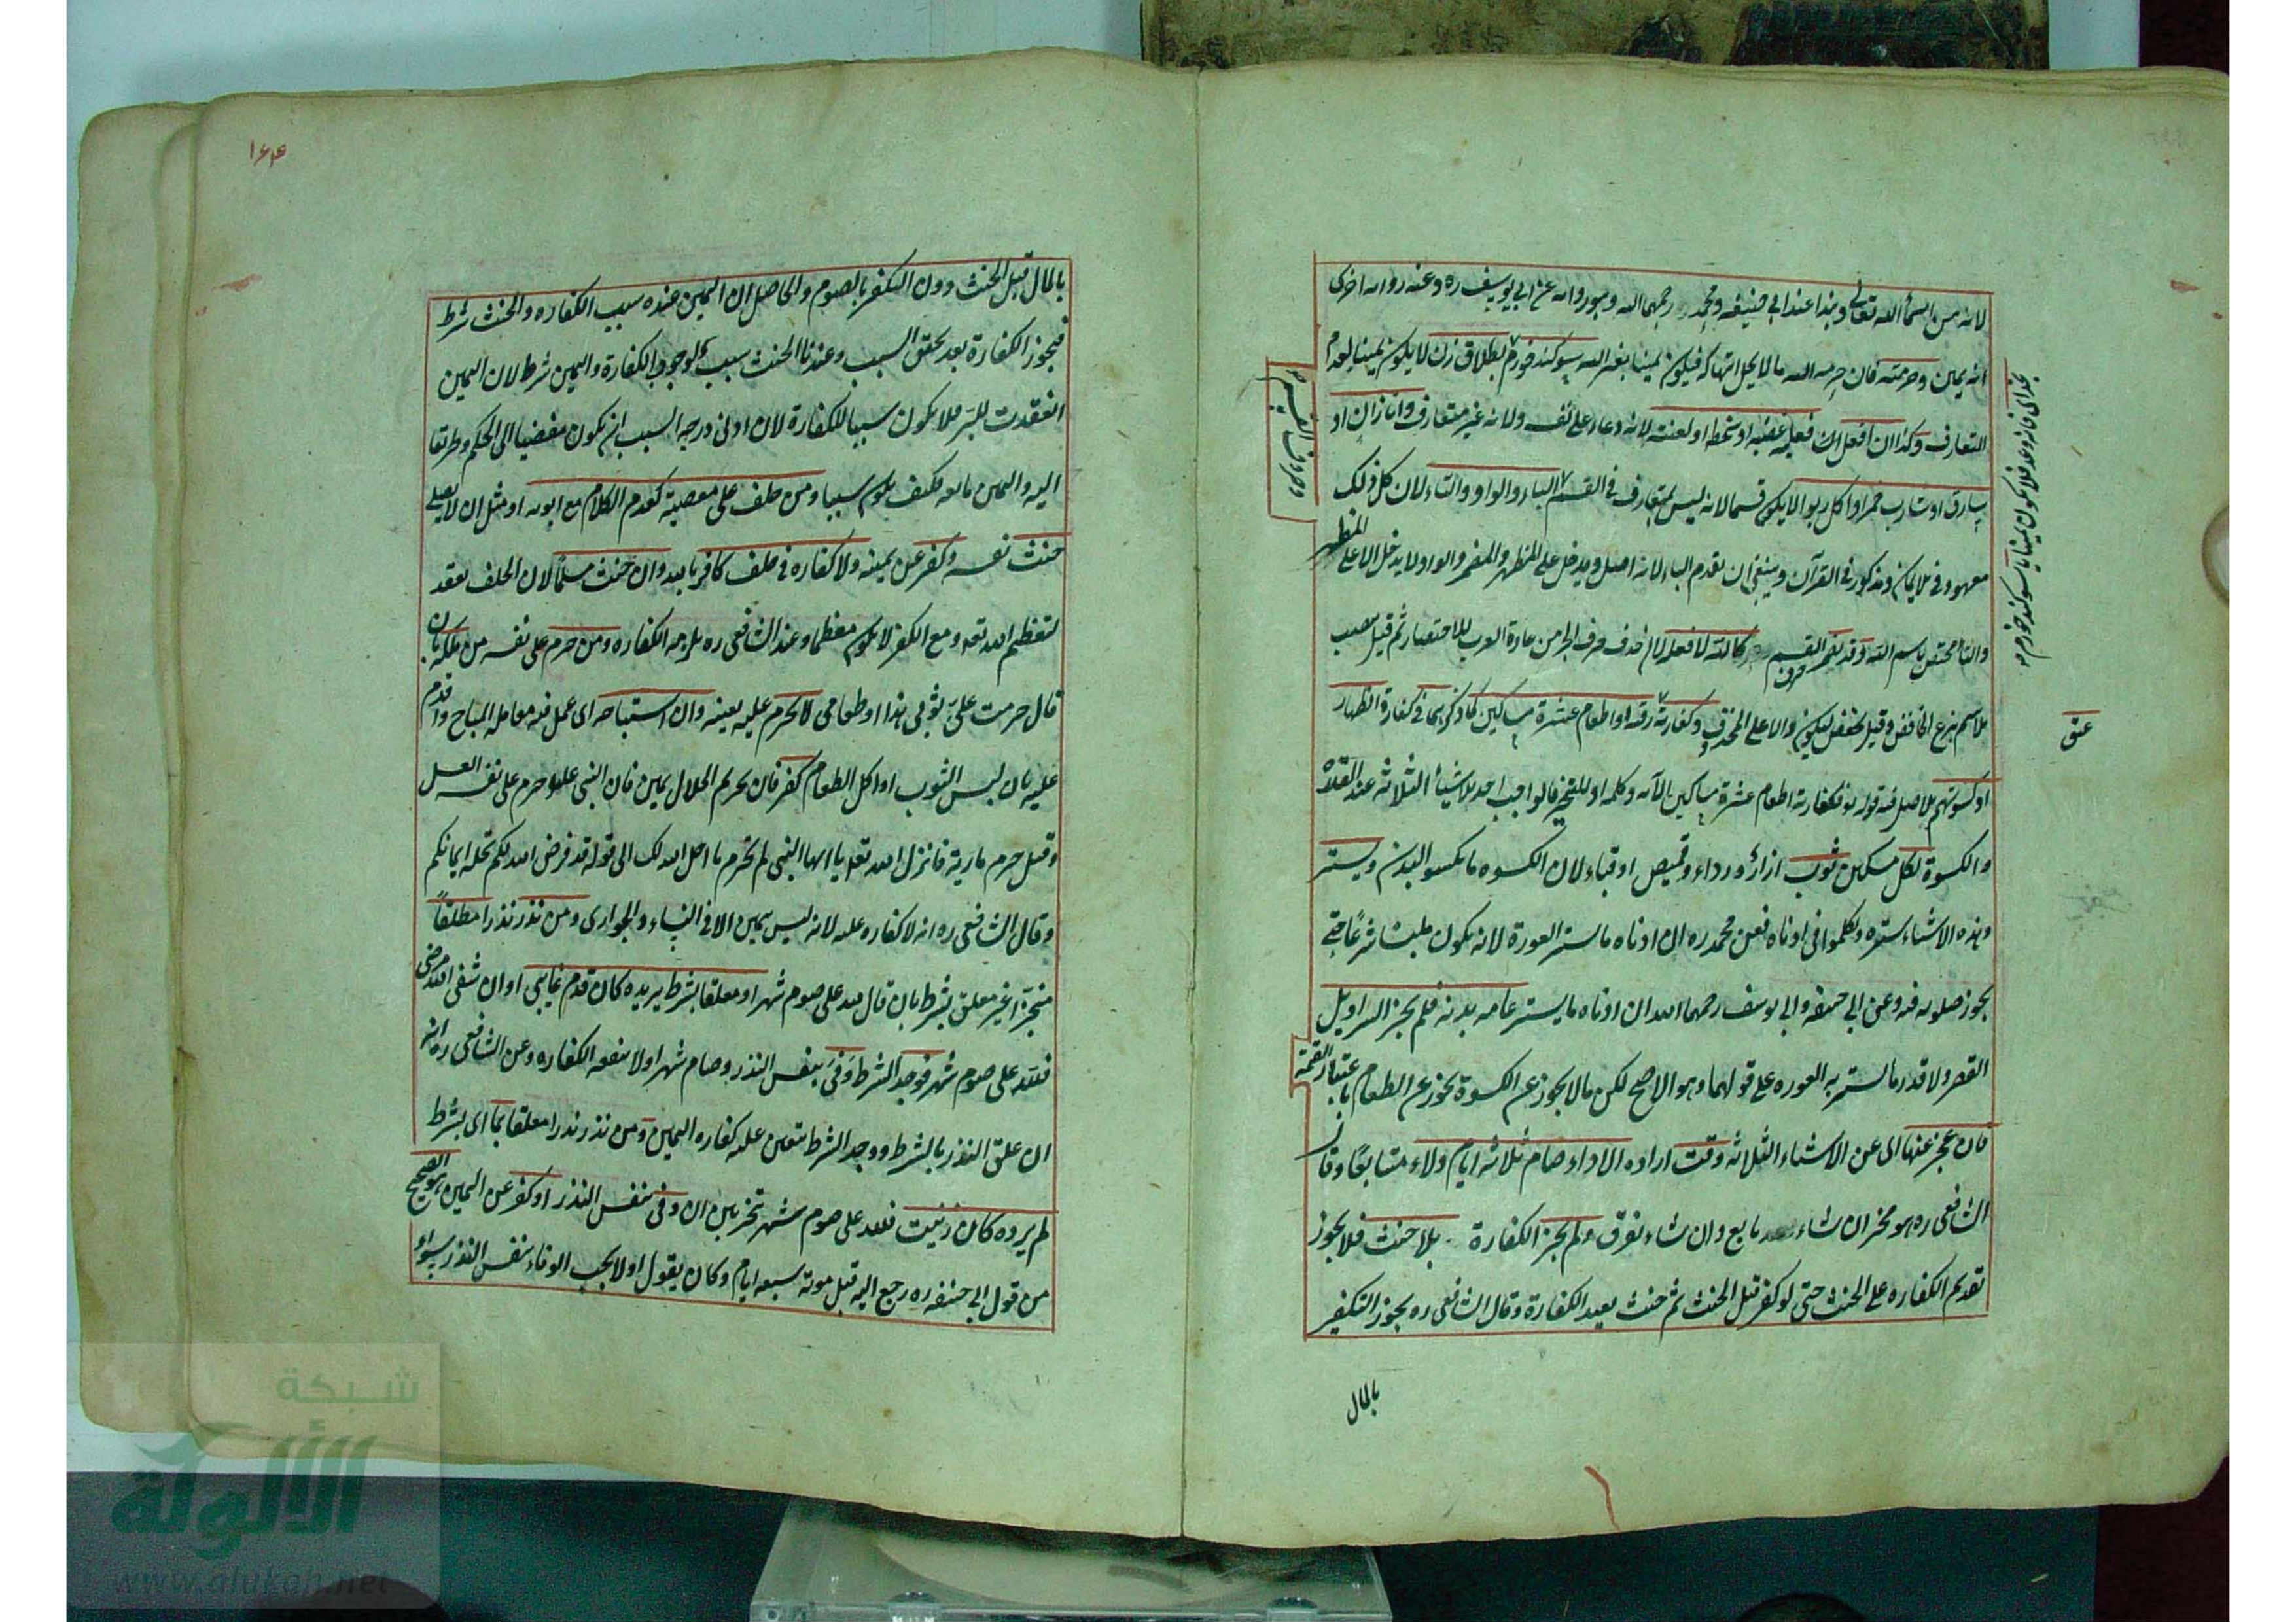 لانه من اسماء الله تعالى وهذا عند ابي حنيفة ومحمد رحمهما الله وهو رواية عن ابي يوسف ره وعنه رواية اخرى
انه يمين وحرمته فان حرمة الله ما لا يحل انتهاكه فيكون يمينا بغير الله سوكند خورم بطلاق زن لا يكون يمينا لعدم
التعارف وكذا ان افعل ان فعله غضبه او سخطه او لعنته لانه دعاء على نفسه ولانه غير متعارف وانا زان او
سارق او شارب خمر او اكل ربوا لا يكون قسما لانه ليس بمتعارف في القسم الباء والواو والتاء لان كل ذلك
معهود في الايمان ومذكور في القرآن وينبغي ان يقدم الباء لانه اصل ويدخل على المظهر والمضمر والواو لا يدخل الا على المظهر
والتاء مختص باسم الله وقد تضمر القسم كالله لا افعله لان حذف حرف الجر من عادة العرب للاختصار ثم قيل ينصب
الاسم بنزع الخافض وقيل يخفض ليكون دالا على المحذوف وكفارته رقبة او اطعام عشرة مساكين كما ذكر هما في كفارة الظهار
او كسوتهم الاصل فيه قوله تع فكفارته اطعام عشرة مساكين الآية وكلمة او للتخير فالواجب احد الاشياء الثلاثة عند القدرة
والكسوة لكل مسكين ثوب ازار ورداء وقميص او قباء لان الكسوة ما يكسو البدن ويستر
وهذه الاشياء يستره وتكلموا في ادناه فعن محمد ره ان ادناه ما يستر العورة لانه يكون ملبسا شرعا حتى
يجوز صلوته فيه وعن ابي حنيفة وابي يوسف رحمهما الله ان ادناه ما يستر عامة بدنه فلم يجز السراويل
القصر ولا قدر ما يستر به العورة على قولهما وهو الاصح لكن ما لا يجوز عن الكسوة يجوز عن الطعام باعتبار القيمة
فان عجز عنها اي عن الاشياء الثلاثة وقت ارادة الاداء صام ثلاثة ايام ولاء متتابعا وقال
الشافعي ره هو مخير ان شاء تابع وان شاء تفرق ولم يجز الكفارة بلا حنث فلا يجوز
تقديم الكفارة على الحنث حتى لو كفر قبل الحنث ثم حنث يعيد الكفارة وقال الشافعي ره يجوز التكفير
بالمال
عتق
بالمال قبل الحنث دون التكفير بالصوم والحاصل ان اليمين عنده سبب الكفارة والحنث شرط
فيجوز الكفارة بعد تحقق السبب وعندنا الحنث سبب لوجوب الكفارة واليمين شرط لان اليمين
انعقدت للبر فلا يكون سببا للكفارة لان ادنى درجة السبب ان يكون مفضيا الى الحكم وطريقا
اليه واليمين مانعة فكيف يكون سببا ومن حلف على معصية كعدم الكلام مع ابويه او مثل ان لا يصلي
حنث نفسه وكفر عن يمينه ولا كفارة في حلف كافر بالله وان حنث مسلما لان الحلف يعقد
لتعظيم الله تع ومع الكفر لا يكون معظما وعند الشافعي ره يلزمه الكفارة ومن حرم على نفسه من ملكه بان
قال حرمت علي ثوبي هذا او طعامي لا يحرم عليه بعينه وان استباحه اي عمل فيه معاملة المباح واقدم
عليه بان لبس الثوب او اكل الطعام كفر فان تحريم الحلال يمين فان النبي علم حرم على نفسه العسل
وقيل حرم مارية فانزل الله تع يا ايها النبي لم تحرم ما احل الله لك الى قوله قد فرض الله لكم تحلة ايمانكم
وقال الشافعي ره انه لا كفارة عليه لانه ليس بيمين الا في النساء والجواري ومن نذر نذرا مطلقا
منجزا غير معلق بشرط بان قال لله علي صوم شهر او معلقا بشرط يريده كان قدم غايبي او ان شفى الله مرضي
فلله علي صوم شهر فوجد الشرط وفى بنفس النذر وصام شهرا ولا ينفعه الكفارة وعن الشافعي ره انه
ان علق النذر بالشرط ووجد الشرط يتعين عليه كفارة اليمين ومن نذر نذرا معلقا بما اي بشرط
لم يرده كان زنيت فلله علي صوم شهر تخير بين ان وفى بنفس النذر او كفر عن اليمين هو الصحيح
من قول ابي حنيفة ره رجع اليه قبل موته سبعة ايام وكان يقول اولا يجب الوفاء بنفس النذر سواء
١٦٤
شبكة
الألوكة
www.alukah.net